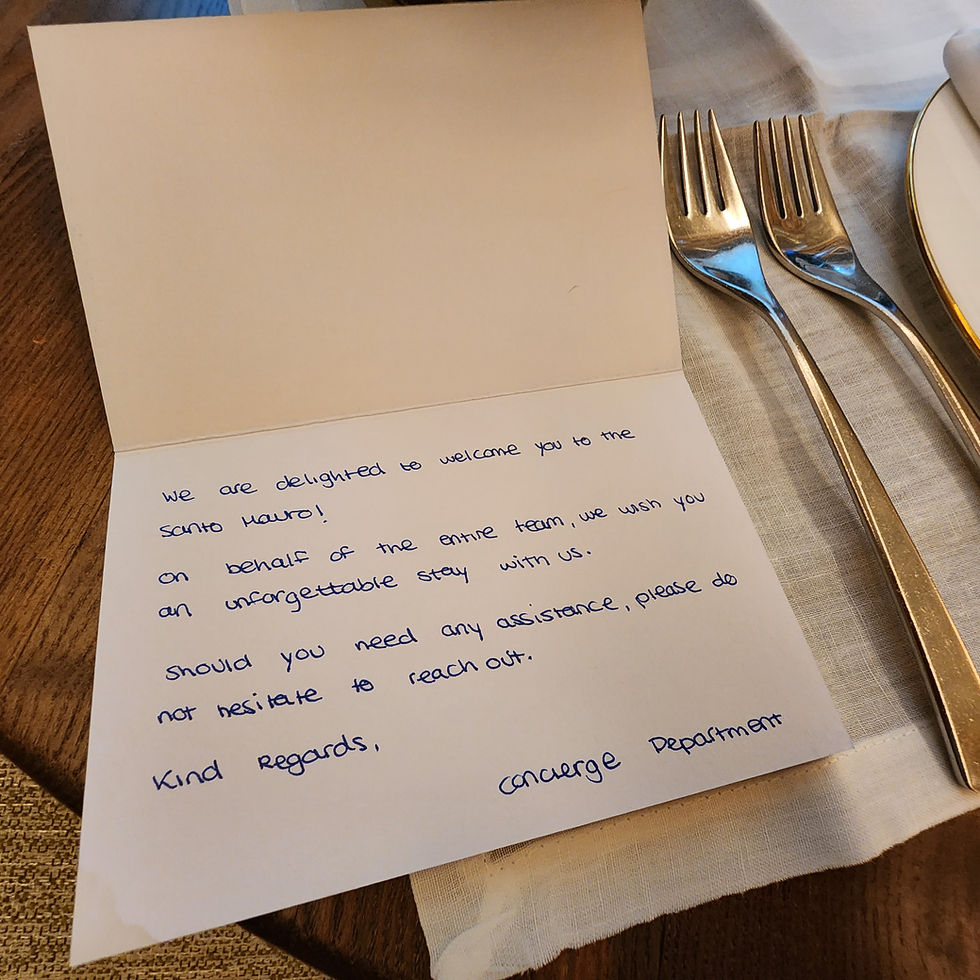 We are delighted to welcome you to the
Santo Mauro!
On behalf of the entire team, we wish you
an unforgettable stay with us.
Should you need any assistance, please do
not hesitate to reach out.
Kind Regards,
Concierge Department